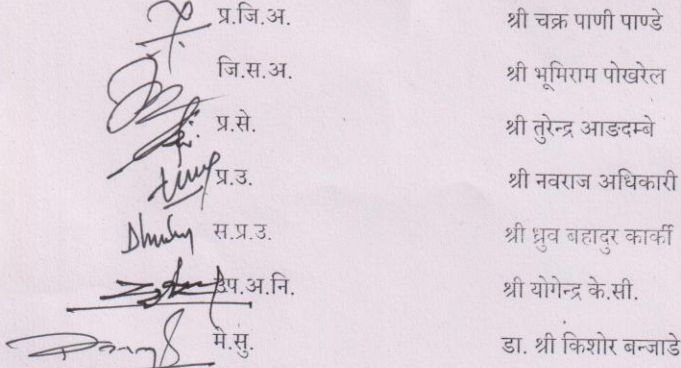 प्र.जि.अ. श्री चक्र पाणी पाण्डे
जि.स.अ. श्री भूमिराम पोखरेल
प्र.से. श्री तुरेन्द्र आङदम्बे
प्र.उ. श्री नवराज अधिकारी
स.प्र.उ. श्री ध्रुव बहादुर कार्की
उप.अ.नि. श्री योगेन्द्र के.सी.
मे.सु. डा. श्री किशोर बन्जाडे